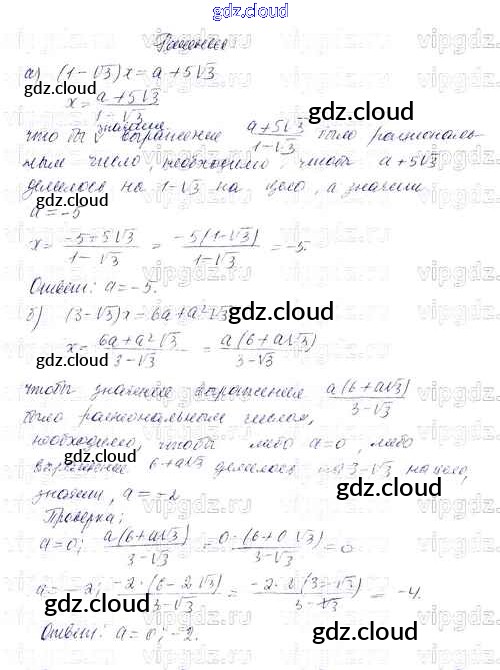 gdz.cloud
Решение
а) (1-√3)x = a+5√3
x = (a+5√3)/(1-√3)
что бы значение выражение (a+5√3)/(1-√3) было рациональ-
ным число, необходимо, чтобы a+5√3
делелось на 1-√3 на цело, а значит
a = -5
x = (-5+5√3)/(1-√3) = (-5(1-√3))/(1-√3) = -5.
Ответ: a = -5.
б) (3-√3)x = 6a+a²√3
x = (6a+a²√3)/(3-√3) = (a(6+a√3))/(3-√3)
чтобы значение выражения (a(6+a√3))/(3-√3)
было рациональным числом,
необходимо, чтобы либо a=0, либо
выражение 6+a√3 делелось на 3-√3 на цело,
значит, a = -2
Проверка:
a = 0; (a(6+a√3))/(3-√3) = (0·(6+0√3))/(3-√3) = 0
a = -2; (-2·(6-2√3))/(3-√3) = (-2·2(3-√3))/(3-√3) = -4.
Ответ: a = 0; -2.